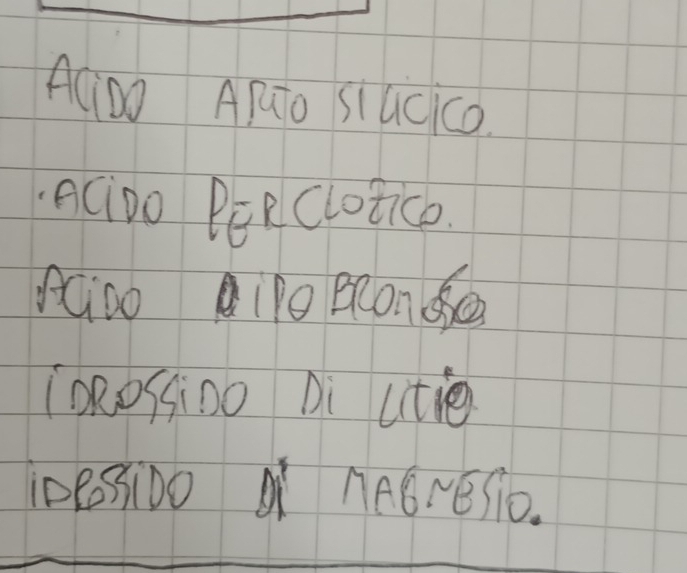 ACIDO ARTO SILICICO.
.ACIDO PERCLORICO.
ACIDO IPOBROMOSO
IDROSSIDO Di LITIO
IDROSSIDO Di MAGNESIO.